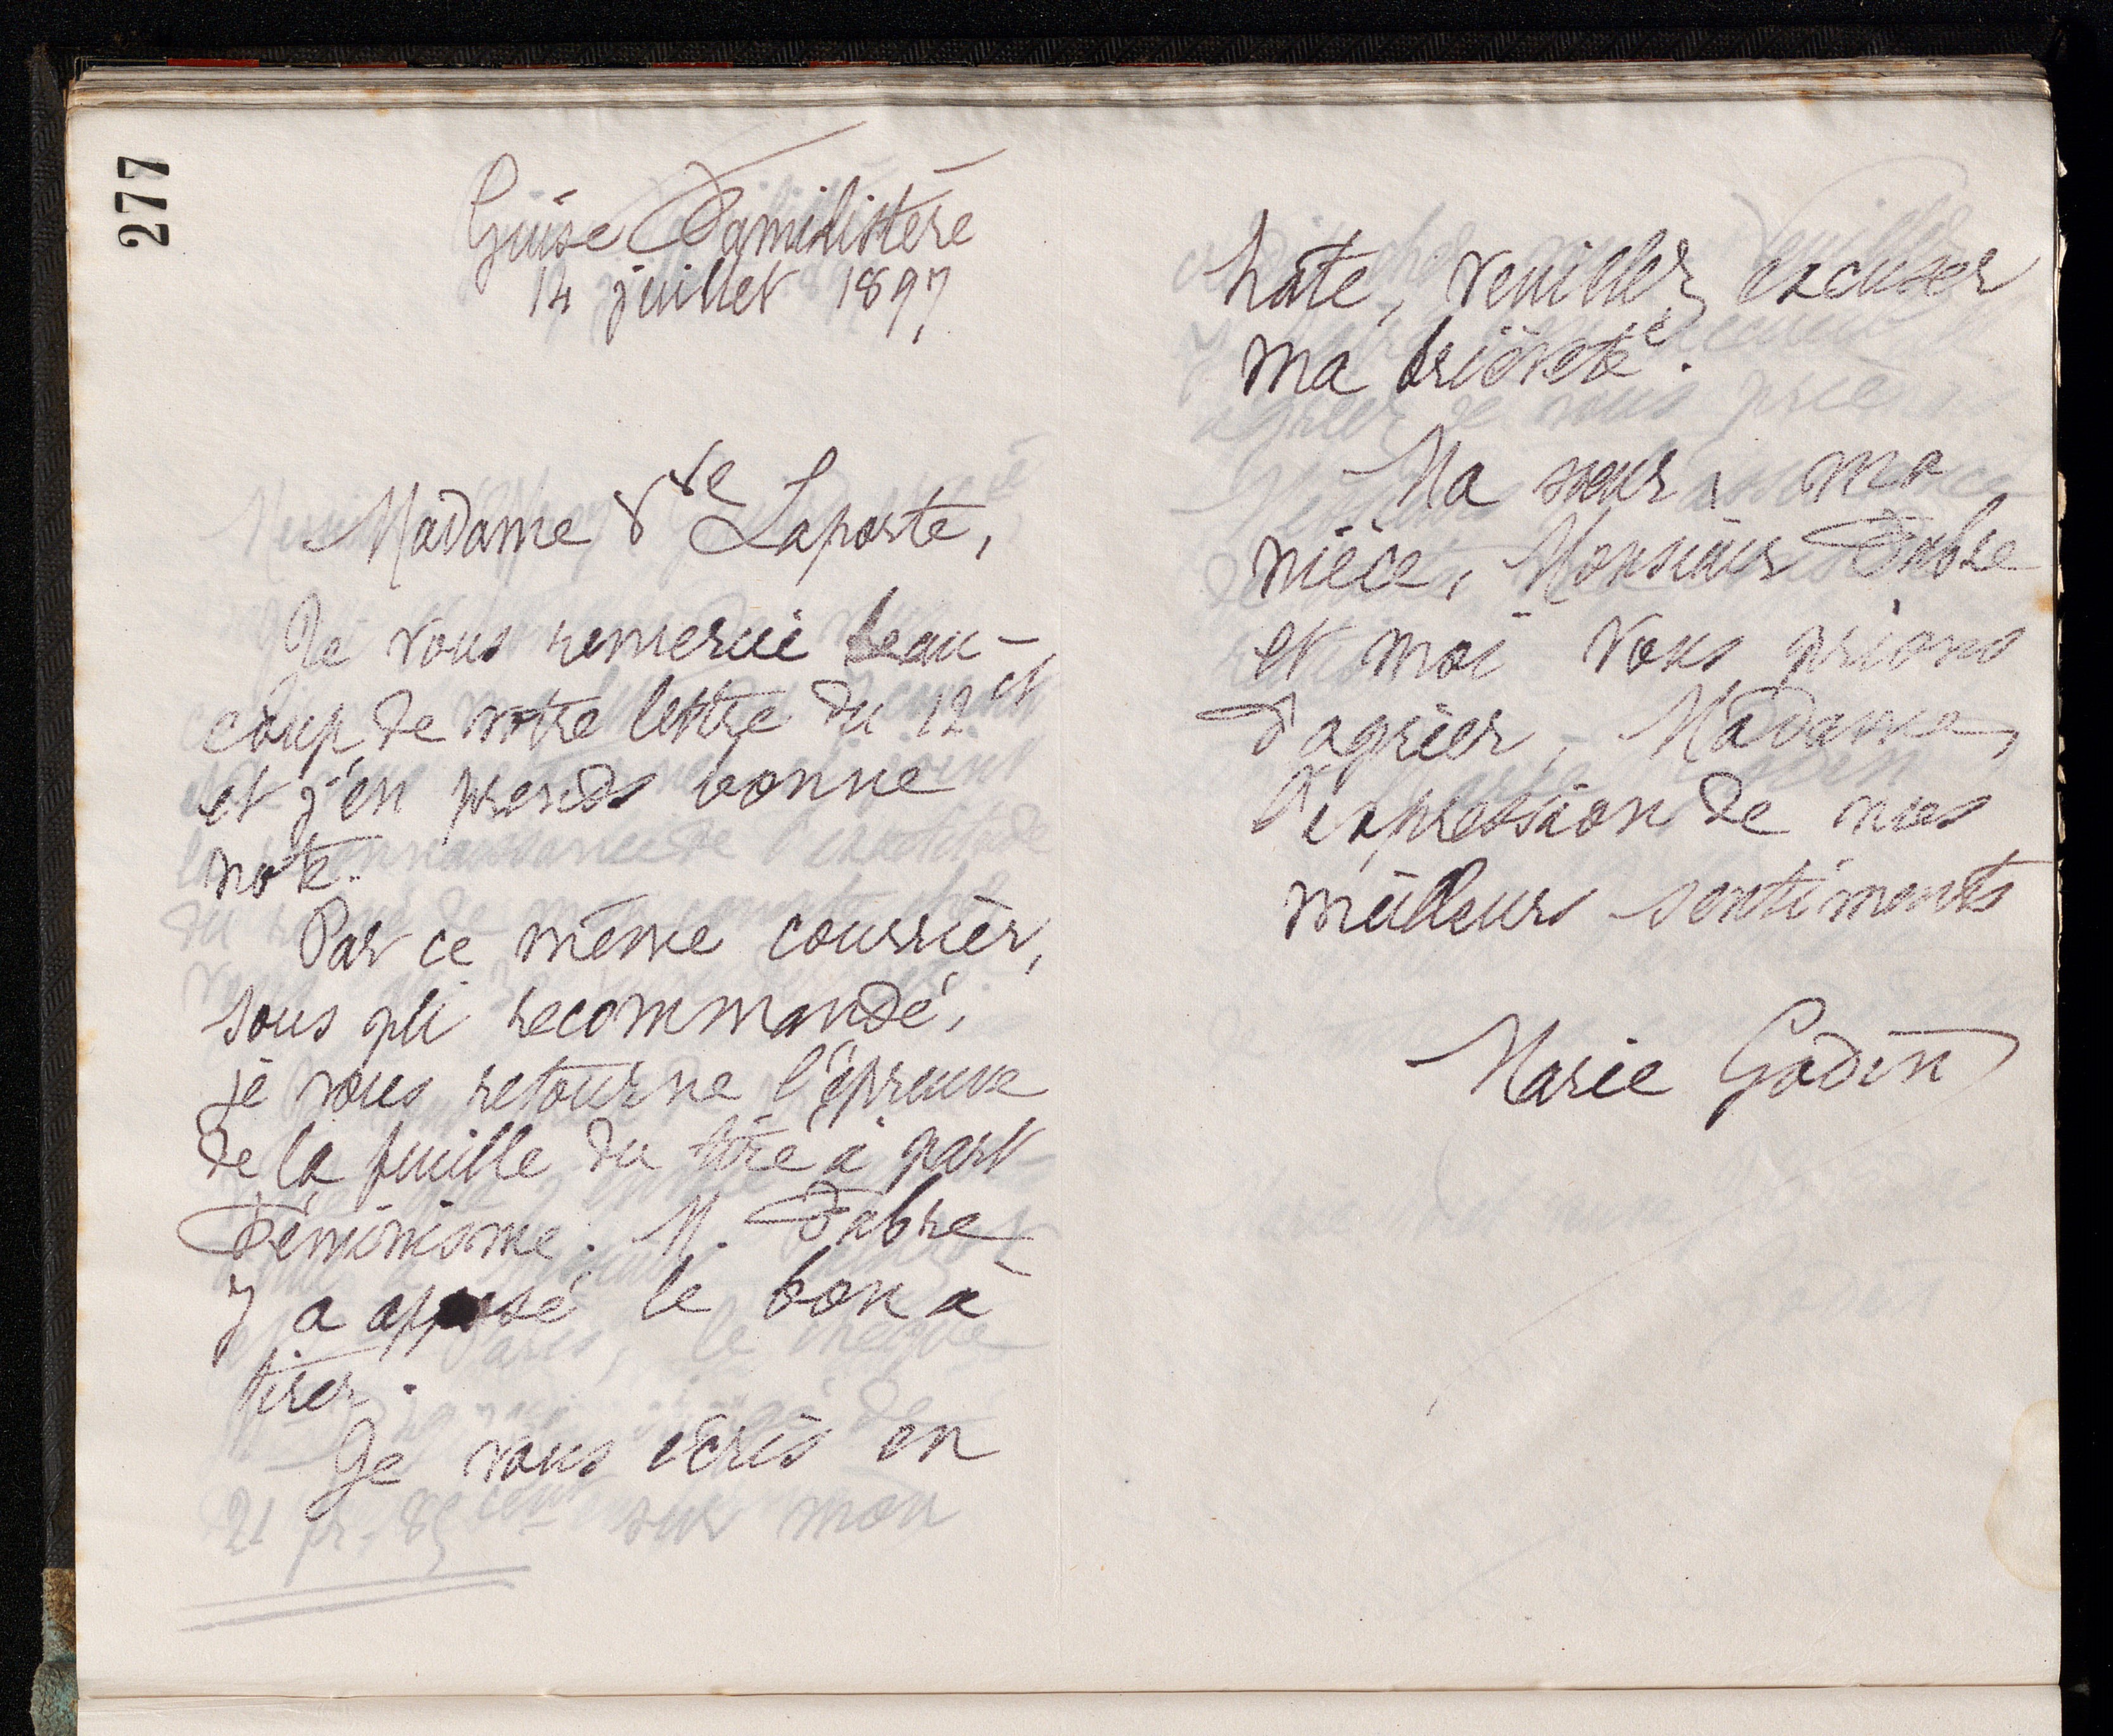 277
Guise Familistère
14 juillet 1897
Madame Vve Laporte,
Je vous remercie beau-
coup de votre lettre du 12 ct
et j'en prends bonne
note.
Par ce même courrier,
sous pli recommandé,
je vous retourne l'épreuve
de la feuille du tiré à part
Féminisme. M. Fabre
y a apposé le bon à
tirer.
Je vous écris en
hâte, veuillez excuser
ma brièveté.
Ma sœur, ma
nièce, Monsieur Fabre
et moi vous prions
d'agréer, Madame,
l'expression de nos
meilleurs sentiments
Marie Godin